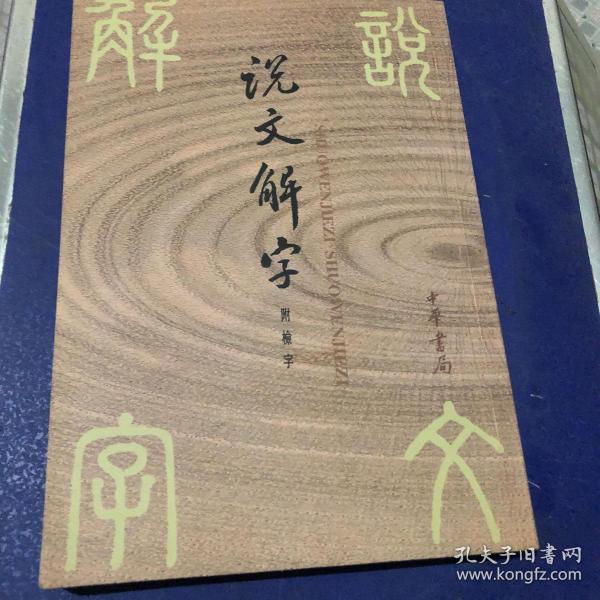 説文
解字
说文解字
附檢字
SHUOWENJIEZI SHUOWENJIEZI
中華書局
孔夫子旧书网
www.kongfz.com